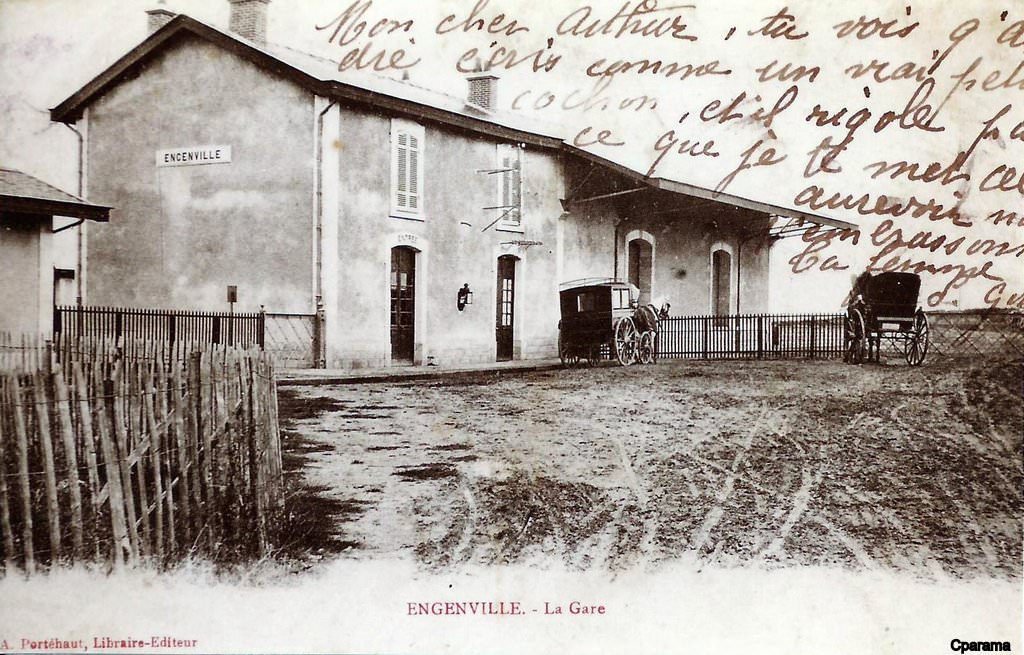 Mon cher Arthur, tu vois, q'A
dré écris comme un vrai pet
cochon, et il rigole pa
ce que je te met
aurevoir
embrasson
ta femme
ENGENVILLE
ENTRÉE
ENGENVILLE. - La Gare
A. Portéhaut, Libraire-Editeur
Cparama